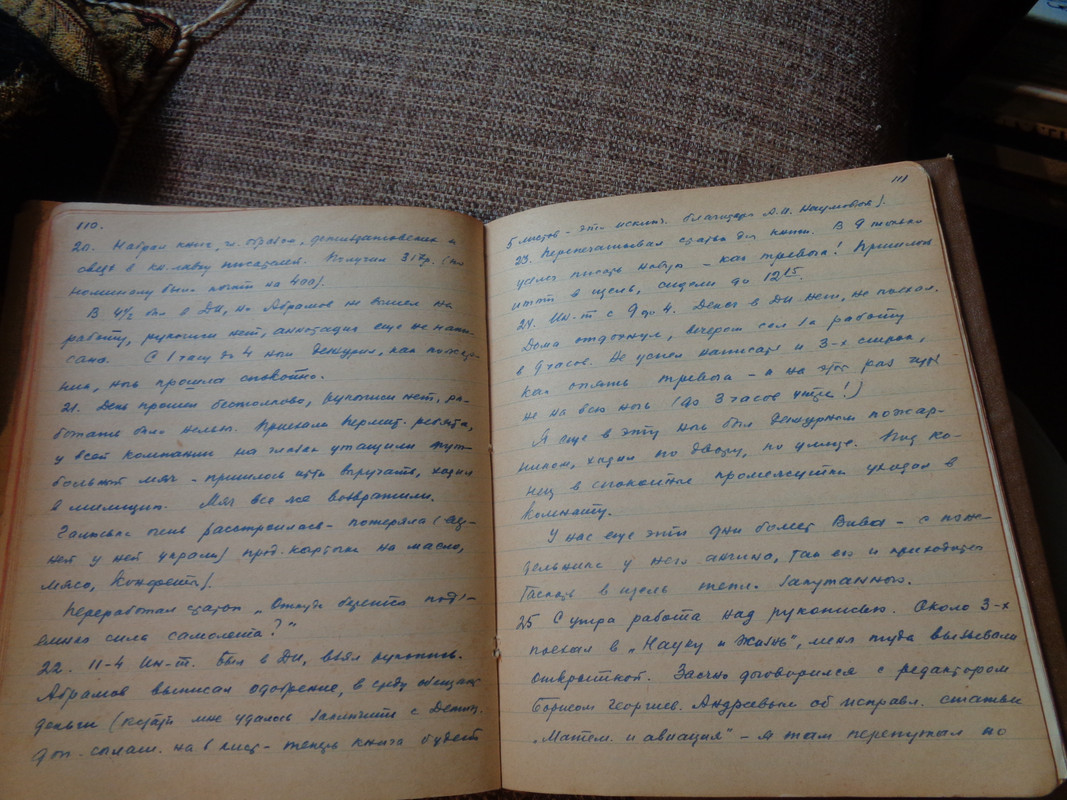 110.
20. Набрал книг, гл. образом, детиздатовских и
свез в кн. лавку писателей. Получил 317р. (по
номиналу было почти на 400).
В 4½ был в ДИ, но Абрамов не вышел на
работу, рукописи нет, аннотация еще не напи-
сана. С 1 часу до 4 ночи дежурил, как пожар-
ник, ночь прошла спокойно.
21. День прошел бестолково, рукописи нет, ра-
ботать было нельзя. Приехали ребята,
у всей компании на глазах утащили
большой мяч - пришлось идти выручать, ходил
в милицию. Мяч все же возвратили.
Галюська очень расстроилась - потеряла (
нет у ней украли) прод. карточки на масло,
мясо, конфеты).
Переработал статью „Откуда берется подъ-
емная сила самолета?"
22. 11-4 Ин-т. Был в ДИ, взял рукопись.
Абрамов выписал одобрение, в среду обещают
деньги (кстати мне удалось заключить с Детизд.
доп. соглаш. на 6 лист. - теперь книга будет
111
5 листов - это исключ. благодаря А.И. Наумовой).
23. Перепечатывал статьи для книги. В 9 только
уселся писать набор - как тревога! Пришлось
итти в щель, сидели до 12¹⁵.
24. Ин-т с 9 до 4. Денег в ДИ нет, не поехал.
Дома отдохнул, вечером сел за работу
в 9 часов. Не успел написать и 3-х строк,
как опять тревога - и на этот раз чуть
не на всю ночь (до 3 часов утра!)
Я еще в эту ночь был дежурным пожар-
ником, ходил по двору, по улице. Под ко-
нец в спокойные промежутки уходил в
комнату.
У нас еще эти дни болеет Вива - с поне-
дельника у него ангина, так его и приходится
таскать в щель тепл. запутанного.
25 С утра работа над рукописью. Около 3-х
поехал в „Науку и Жизнь", меня туда вызывали
открыткой. Заочно договорился с редактором
Борисом Георгиев. Андреевым об исправл. статьи
„Матем. и авиация" - я там перепутал но